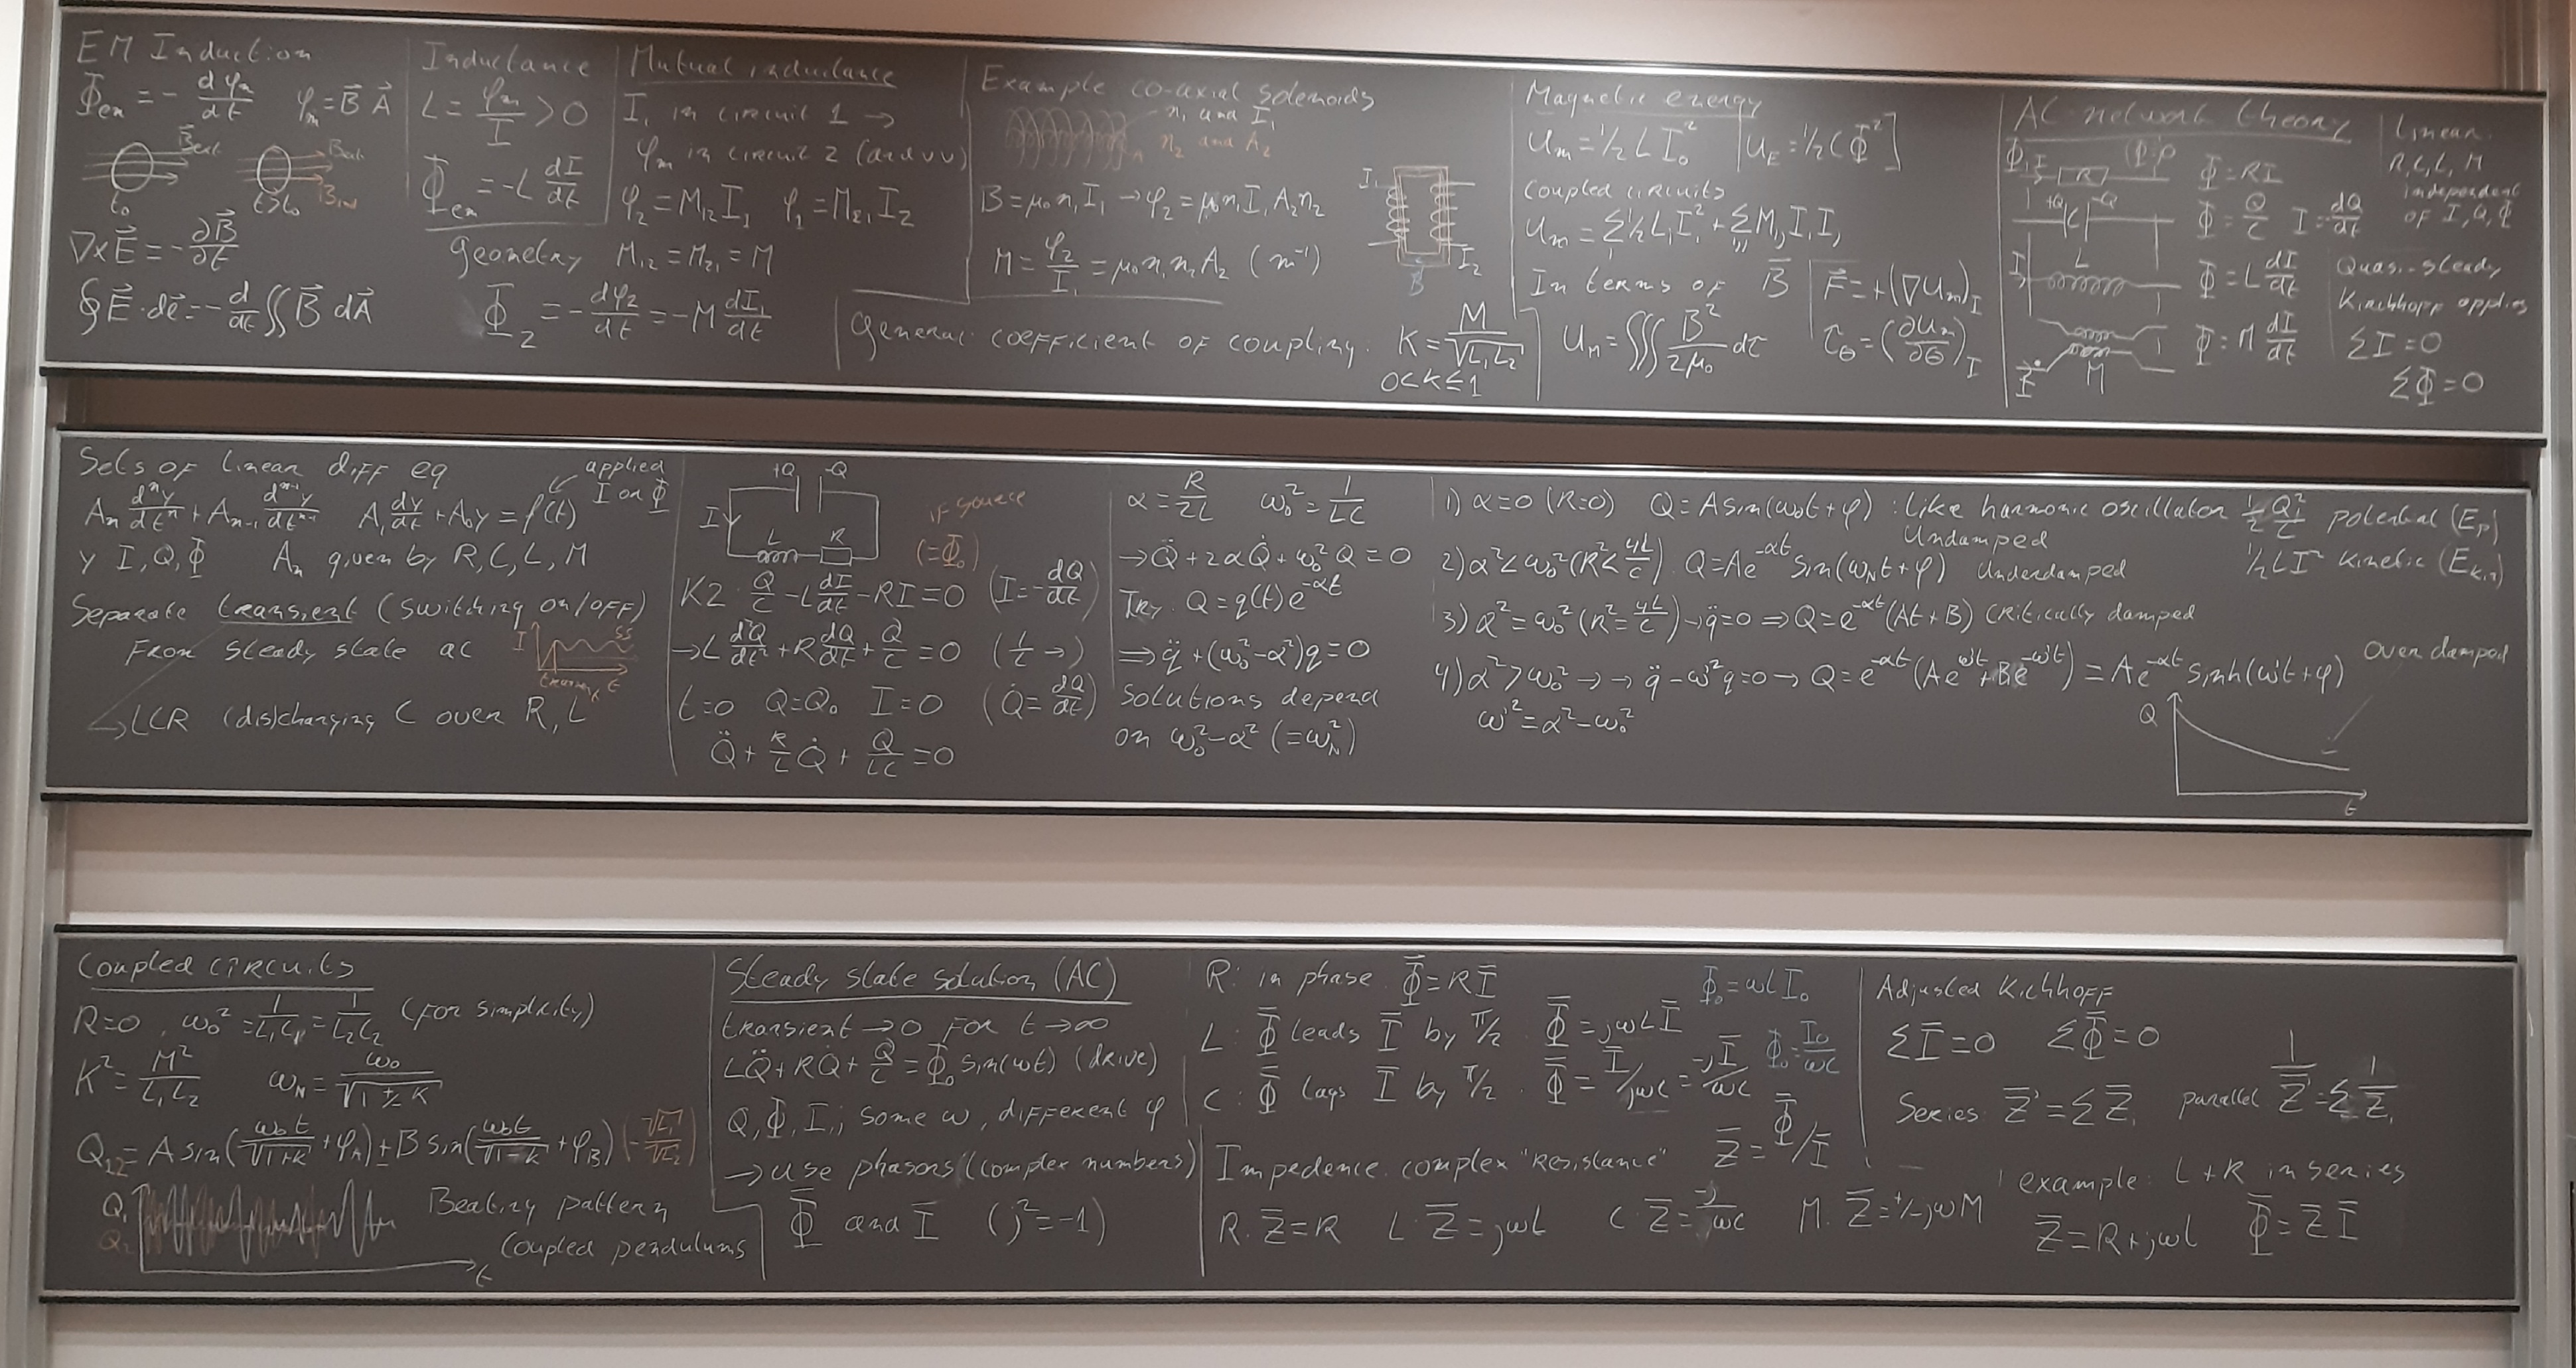 EM Induction
Φ_em = - dφ_m/dt φ_m = B⃗ A⃗
B⃗ext Bext
t₀ t>t₀ Bind
∇×E⃗ = -∂B⃗/∂t
∮E⃗·dℓ⃗ = - d/dt ∬B⃗ dA⃗
Inductance
L = φ_m/I > 0
Φ_em = -L dI/dt
Mutual inductance
I₁ in circuit 1 →
φ_m in circuit 2 (and vv)
φ₂ = M₁₂I₁ φ₁ = M₂₁I₂
geometry M₁₂ = M₂₁ = M
Φ₂ = - dφ₂/dt = -M dI₁/dt
Example co-axial solenoids
n₁ and I₁
n₂ and A₂
B = μ₀n₁I₁ → φ₂ = μ₀n₁I₁A₂n₂
M = φ₂/I₁ = μ₀n₁n₂A₂ (m⁻¹)
I₁
I₂
B
general: coefficient of coupling: K = M/√(L₁L₂)
0<k≤1
Magnetic energy
U_m = ½ L I₀² [U_E = ½ C Φ²]
Coupled circuits
U_m = Σ½L_iI_i² + ΣM_ijI_iI_j
In terms of B⃗
U_M = ∭ B²/2μ₀ dτ
F⃗ = +(∇U_m)_I
τ_θ = (∂U_m/∂θ)_I
AC-network theory
Φ, I R Φ = RI
+Q C -Q Φ = Q/C I = dQ/dt
I L Φ = L dI/dt
I M Φ = M dI/dt
Linear:
R, C, L, M
independent
of I, Q, Φ
Quasi-steady
Kirchhoff applies
ΣI = 0
ΣΦ = 0
Sets of linear diff eq
applied
I or Φ
A_n dⁿy/dtⁿ + A_n-1 dⁿ⁻¹y/dtⁿ⁻¹ A₁ dy/dt + A₀y = f(t)
y I, Q, Φ A_n given by R, C, L, M
Separate transient (switching on/off)
From steady state ac
I SS
transient t
↳ LCR (dis)charging C over R, L
+Q -Q
I
L R
if source
(=Φ₀)
K2: Q/C - L dI/dt - RI = 0 (I = -dQ/dt)
→ L d²Q/dt² + R dQ/dt + Q/C = 0 (1/L →)
t=0 Q=Q₀ I=0 (Q̇ = dQ/dt)
Q̈ + R/L Q̇ + Q/LC = 0
α = R/2L ω₀² = 1/LC
→ Q̈ + 2αQ̇ + ω₀²Q = 0
Try: Q = q(t)e^-αt
⇒ q̈ + (ω₀²-α²)q = 0
Solutions depend
on ω₀²-α² (=ω_N²)
1) α=0 (R=0) Q = A sin(ω₀t+φ) : Like harmonic oscillator ½ Q²/C potential (E_p)
Undamped
½LI² kinetic (E_kin)
2) α²<ω₀² (R²<4L/C) Q = Ae^-αt sin(ω_Nt+φ) Underdamped
3) α²=ω₀² (R²=4L/C) → q̈=0 ⇒ Q = e^-αt(At+B) Critically damped
4) α²>ω₀² → → q̈-ω'²q=0 → Q = e^-αt(Ae^ω't+Be^-ω't) = Ae^-αt sinh(ω't+φ)
Over damped
ω'² = α²-ω₀²
Q
t
Coupled circuits
R=0, ω₀² = 1/L₁C₁ = 1/L₂C₂ (for simplicity)
K² = M²/L₁L₂ ω_N = ω₀/√(1±K)
Q₁₂ = A sin(ω₀t/√(1+k) + φ_A) ± B sin(ω₀t/√(1-k) + φ_B) (-√L₁/√L₂)
Q₁
Q₂
Beating pattern
Coupled pendulums
t
Steady state solution (AC)
transient → 0 for t → ∞
LQ̈ + RQ̇ + Q/C = Φ₀ sin(ωt) (drive)
Q, Φ, I, ; same ω, different φ
→ use phasors (complex numbers)
Φ̄ and Ī (j²=-1)
R: in phase Φ̄ = RĪ Φ₀ = ωLI₀
L: Φ̄ leads Ī by π/2. Φ̄ = jωLĪ
C: Φ̄ lags Ī by π/2. Φ̄ = Ī/jωC = -jĪ/ωC Φ₀ = I₀/ωC
Impedence: complex "resistance" Z̄ = Φ̄/Ī
R: Z̄=R L: Z̄=jωL C: Z̄=-j/ωC M: Z̄=+/-jωM
Adjusted Kichhoff
ΣĪ = 0 ΣΦ̄ = 0
Series: Z̄ = ΣZ̄_i parallel 1/Z̄ = Σ 1/Z̄_i
example: L+R in series
Z̄ = R+jωL Φ̄ = Z̄ Ī